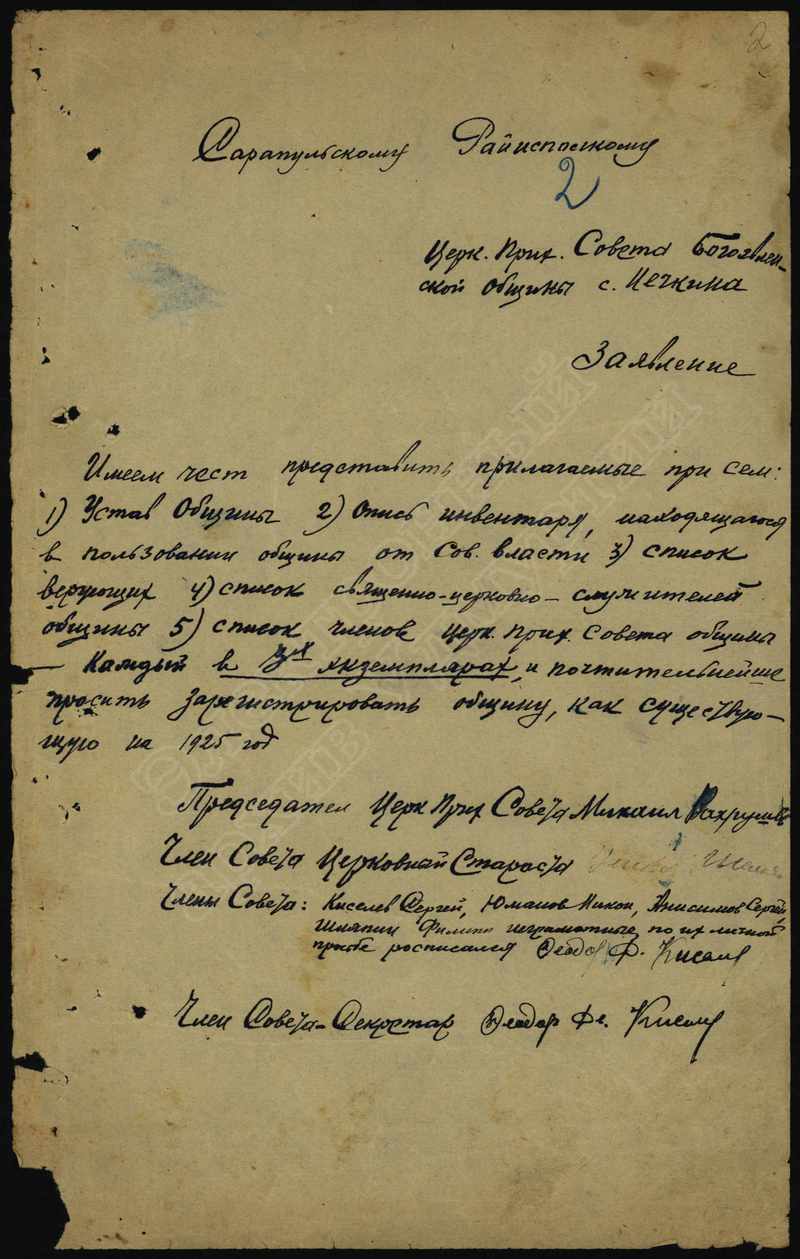 2
Сарапульскому Райисполкому
2
Церк. Прих. Совета Богоявлен-
ской общины с. Нечкина
Заявление
Имеем чест представить прилагаемые при сем:
1) Устав Общины 2) Опись инвентаря, находящагося
в пользовании общины от Сов. власти 3) список
верующих 4) список священно-церковно-служителей
общины 5) список членов Церк. Прих. Совета общины
– Каждый в 3х экземплярах, и почтительнейше
просить зарегистрировать общину, как существую-
щую на 1925 год
Председател Церк Прих Совета Михаил Вахрушев
Член Совета Церковный Староста
Члены Совета: Киселев Сергей, Юманов Никон, Анисимов Сергей,
Шляпин Филипп неграмотные, по их личной
прозбе росписался Феодор Ф. Кисел
Член Совета-Секретар Феодор Ф. Кисел